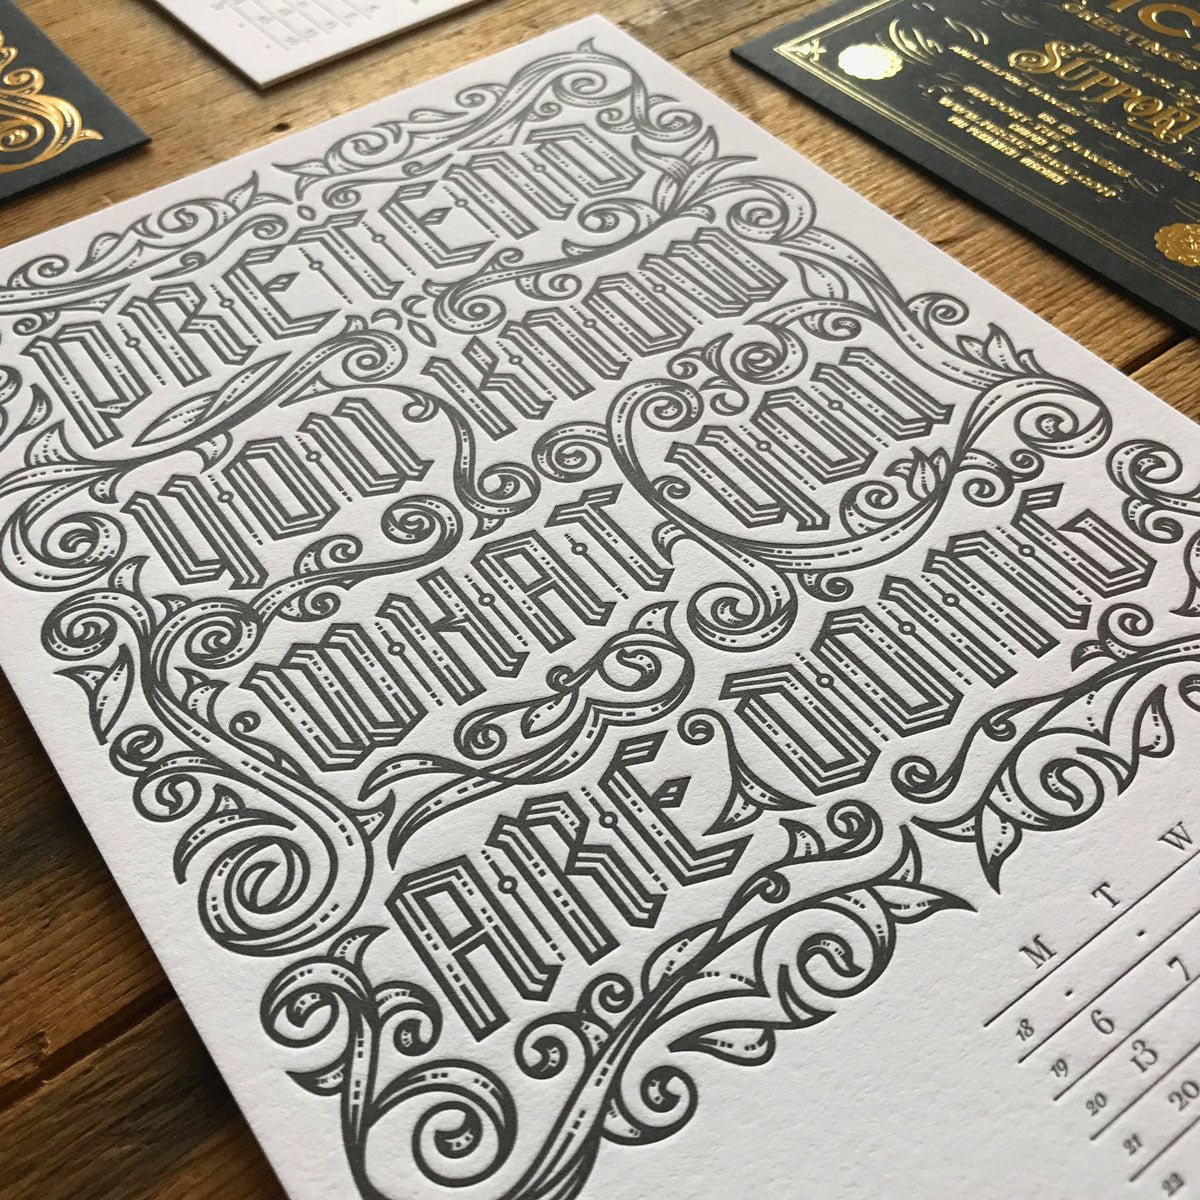 PRETEND
YOU KNOW
WHAT YOU
ARE DOING
M T W
18
19 6 7
20 13
21 20
22
GREETINGS
SUPPORT